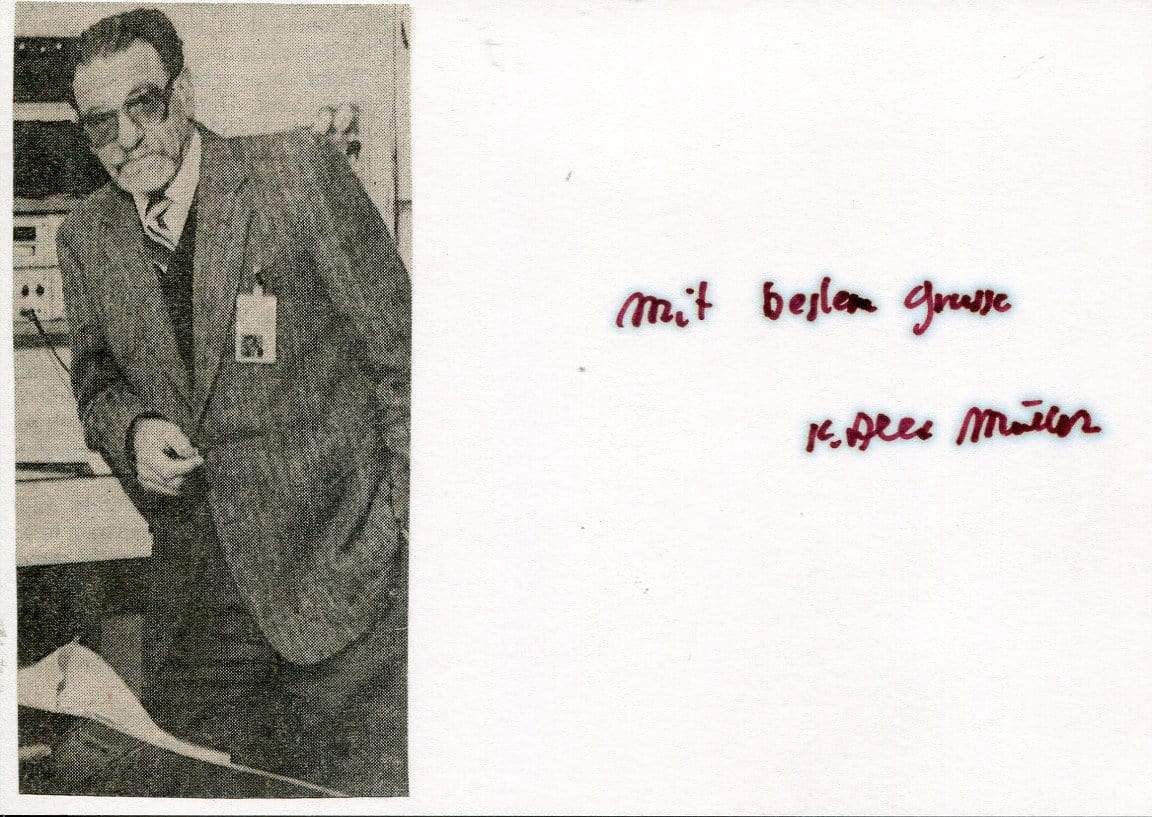 mit bestem Grusse
K. Alex Müller